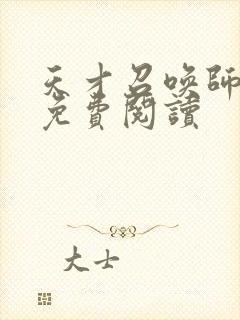 天才召喚師
免費閱讀
大士